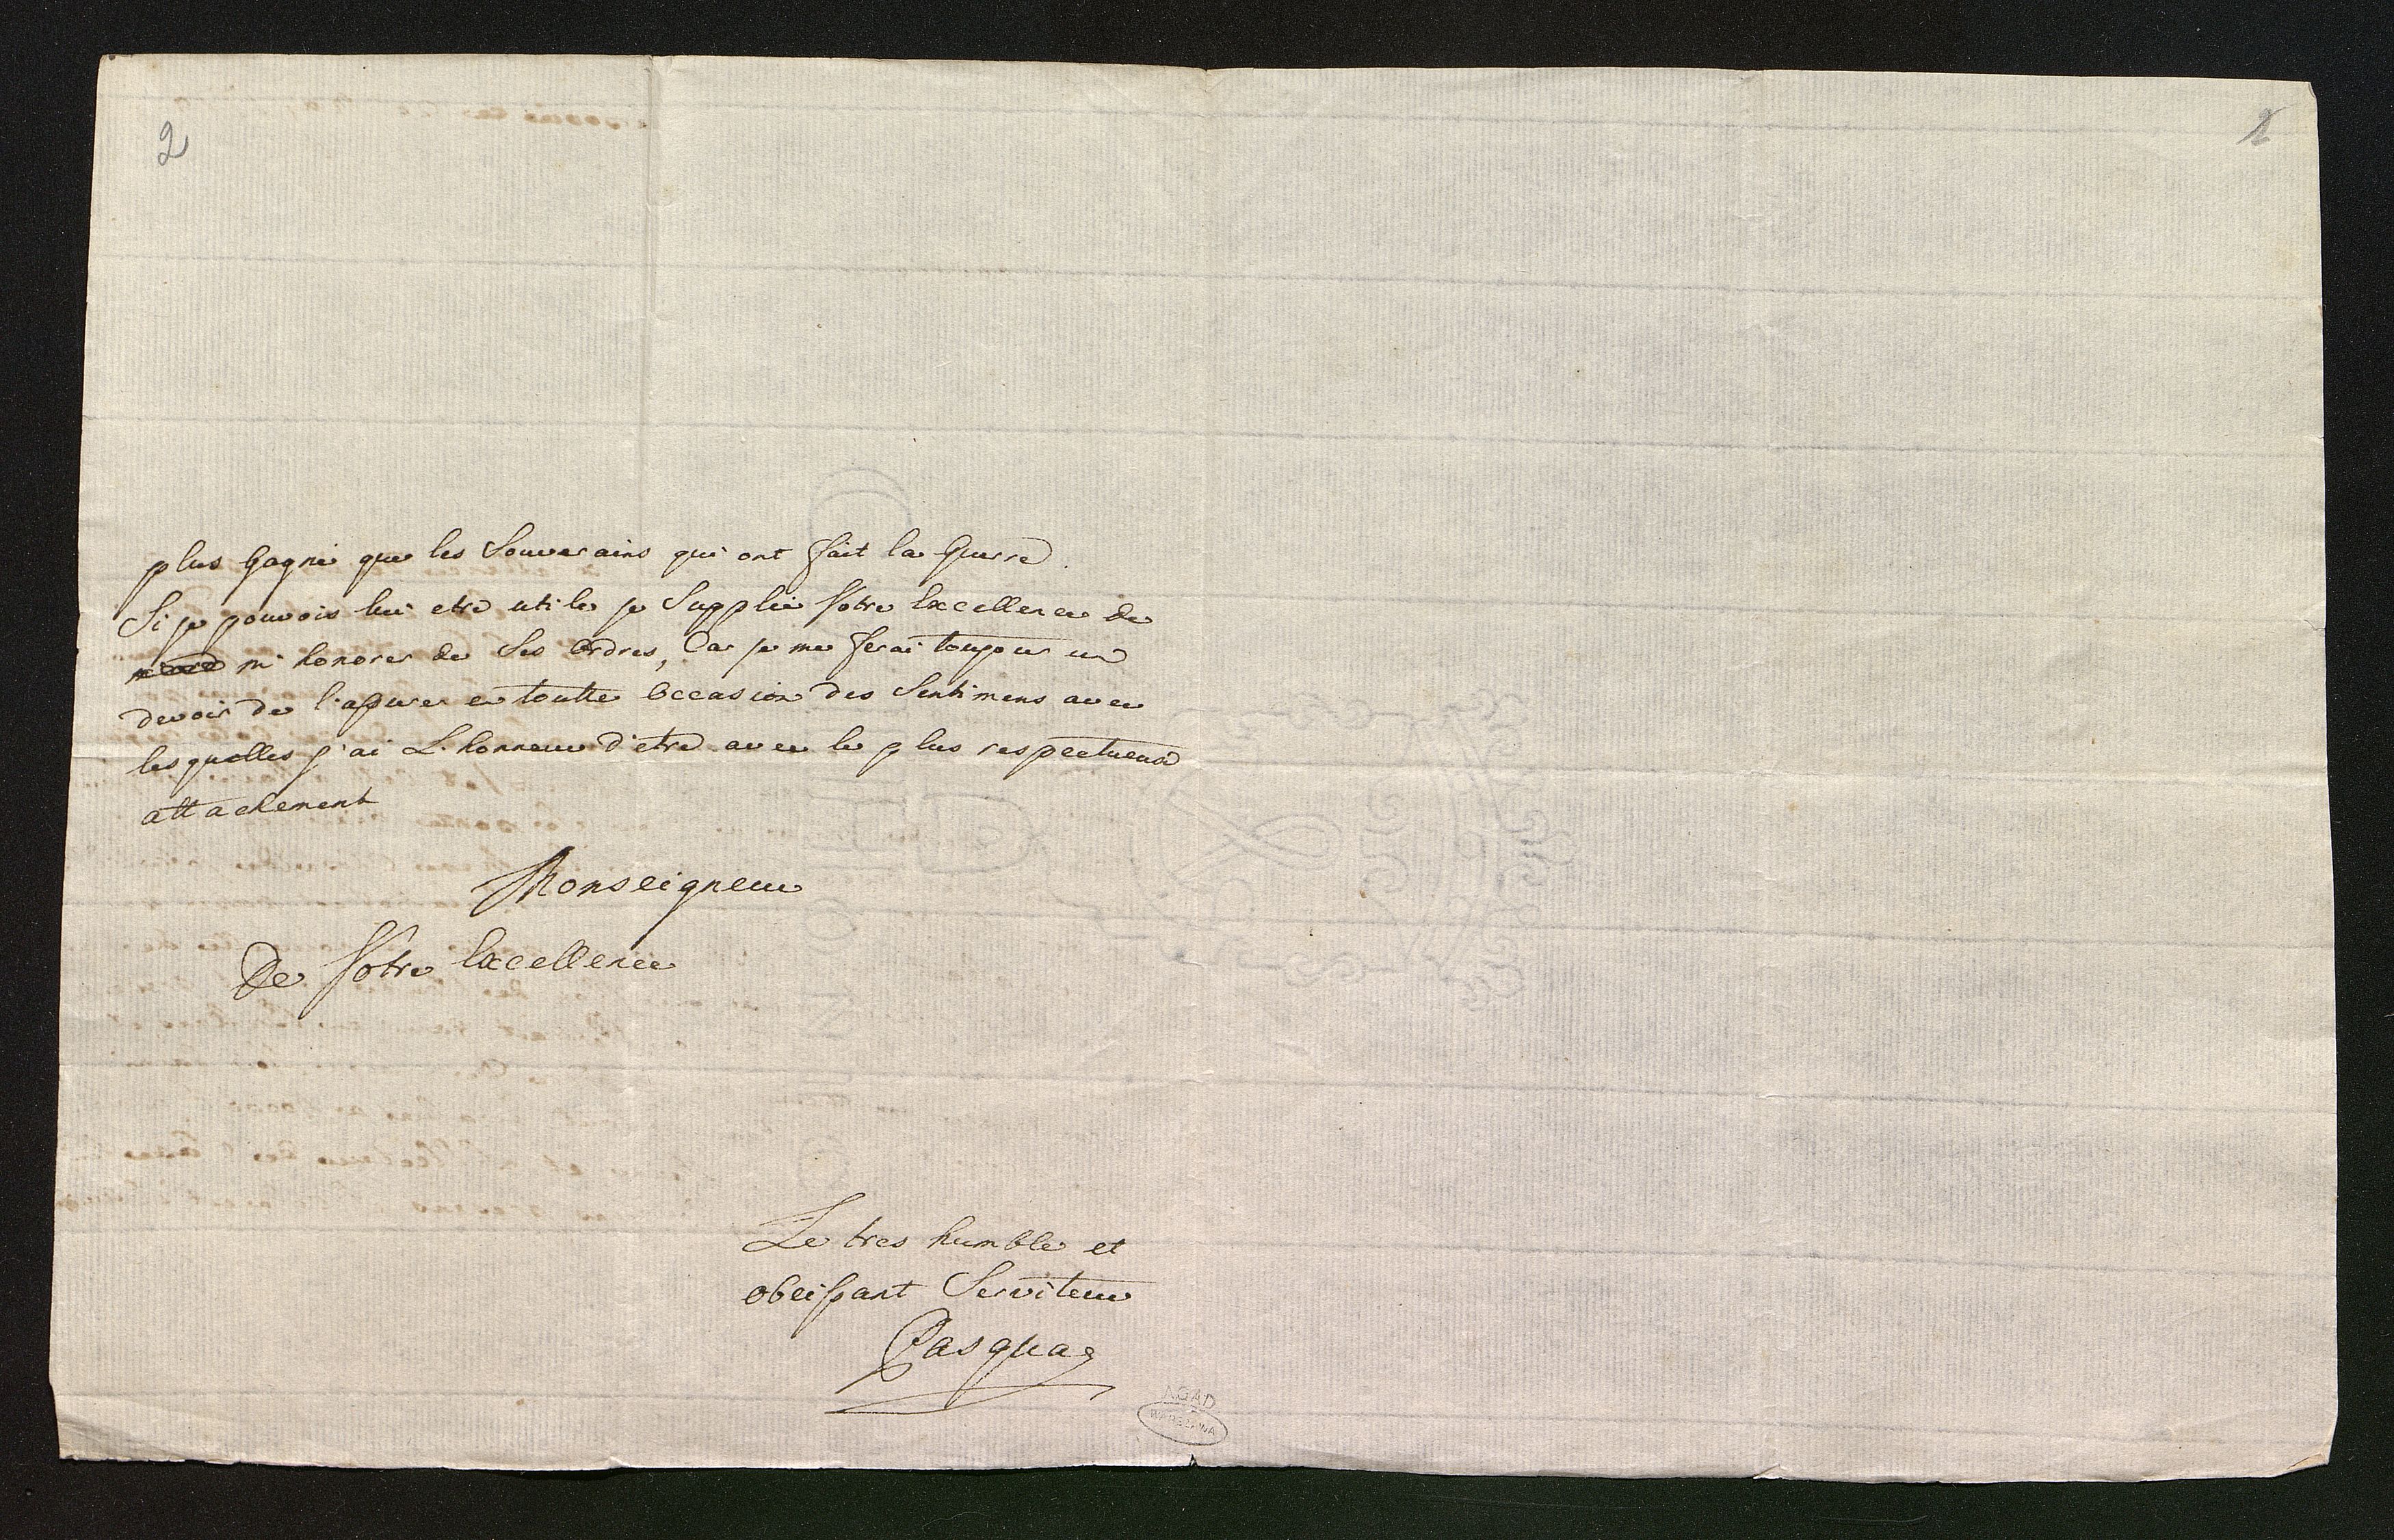 2
plus Gagné que les Souverains qui ont fait la Guerre.
Si je pouvois lui etre utile je Supplie Votre Excellence de
m'honorer de Ses Ordres, Car je me ferai toujour un
devoir de l'assurer en toutte Occasion des Sentimens avec
lesquelles j'ai L'honneur d'etre avec le plus respectueux
attachement
Monseigneur
De Votre Excellence
Le tres humble et
obeissant Serviteur
AGAD
WARSZAWA